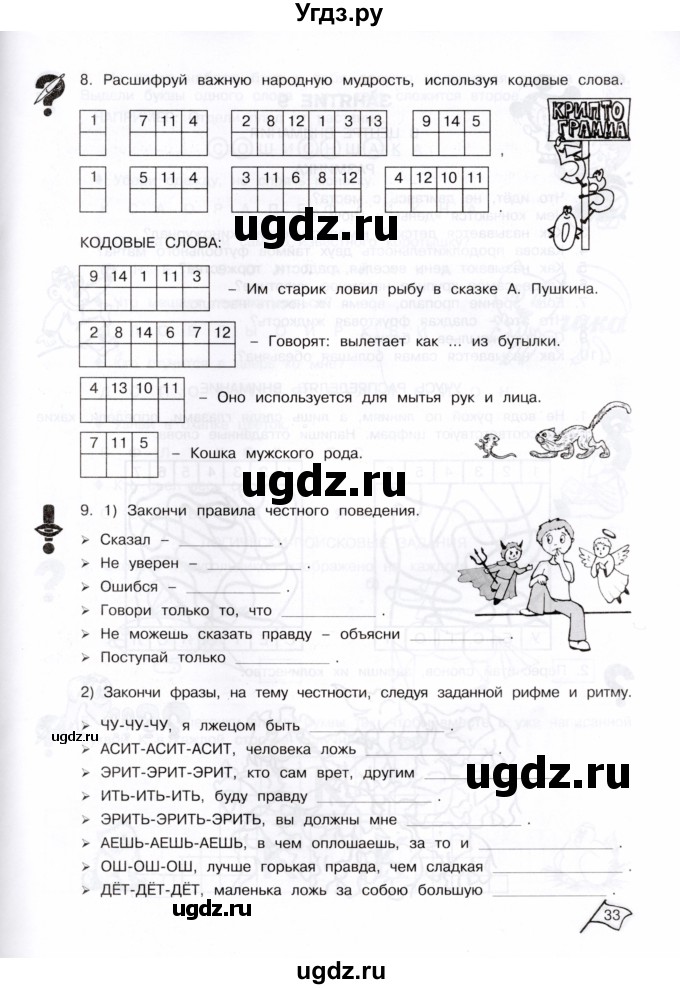 Угдз.ру
8. Расшифруй важную народную мудрость, используя кодовые слова.
КРИПТО
ГРАММА
1 7 11 4 2 8 12 1 3 13 9 14 5
,
1 5 11 4 3 11 6 8 12 4 12 10 11
.
КОДОВЫЕ СЛОВА:
9 14 1 11 3
– Им старик ловил рыбу в сказке А. Пушкина.
2 8 14 6 7 12
– Говорят: вылетает как ... из бутылки.
4 13 10 11
– Оно используется для мытья рук и лица.
7 11 5
– Кошка мужского рода.
9. 1) Закончи правила честного поведения.
Сказал – .
Не уверен – .
Ошибся – .
Говори только то, что .
Не можешь сказать правду – объясни .
Поступай только .
2) Закончи фразы, на тему честности, следуя заданной рифме и ритму.
ЧУ-ЧУ-ЧУ, я лжецом быть .
АСИТ-АСИТ-АСИТ, человека ложь .
ЭРИТ-ЭРИТ-ЭРИТ, кто сам врет, другим
ИТЬ-ИТЬ-ИТЬ, буду правду .
ЭРИТЬ-ЭРИТЬ-ЭРИТЬ, вы должны мне .
АЕШЬ-АЕШЬ-АЕШЬ, в чем оплошаешь, за то и .
ОШ-ОШ-ОШ, лучше горькая правда, чем сладкая .
ДЁТ-ДЁТ-ДЁТ, маленька ложь за собою большую .
33
ugdz.ru
ugdz.ru
ugdz.ru
ugdz.ru
ugdz.ru
ugdz.ru
ugdz.ru